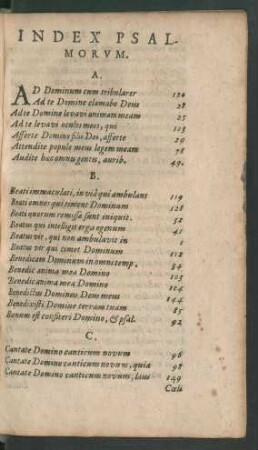 INDEX PSAL-
MORVM.
A.
AD Dominum cum tribularer 120
Ad te Domine clamabo Deus 28
Ad te Domine levavi animam meam 25
Ad te levavi oculos meos, qui 123
Afferte Domino filii Dei, afferte 29
Attendite popule meus legem meam 78
Audite hæc omnes gentes, aurib. 49.
B.
Beati immaculati, in via qui ambulant 119
Beati omnes qui timent Dominum 128
Beati quorum remissæ sunt iniquit. 32
Beatus qui intelligit erga egenum 41
Beatus vir, qui non ambulavit in 1
Beatus vir qui timet Dominum 112
Benedicam Dominum in omni temp. 34
Benedic anima mea Domino 103
Benedic anima mea Domino 104
Benedictus Dominus Deus meus 144
Benedixisti Domine terram tuam 85
Bonum est confiteri Domino, & psal. 92
C.
Cantate Domino canticum novum 96
Cantate Domino canticum novum, quia 98
Cantate Domino canticum novum, laus 149
Cæli